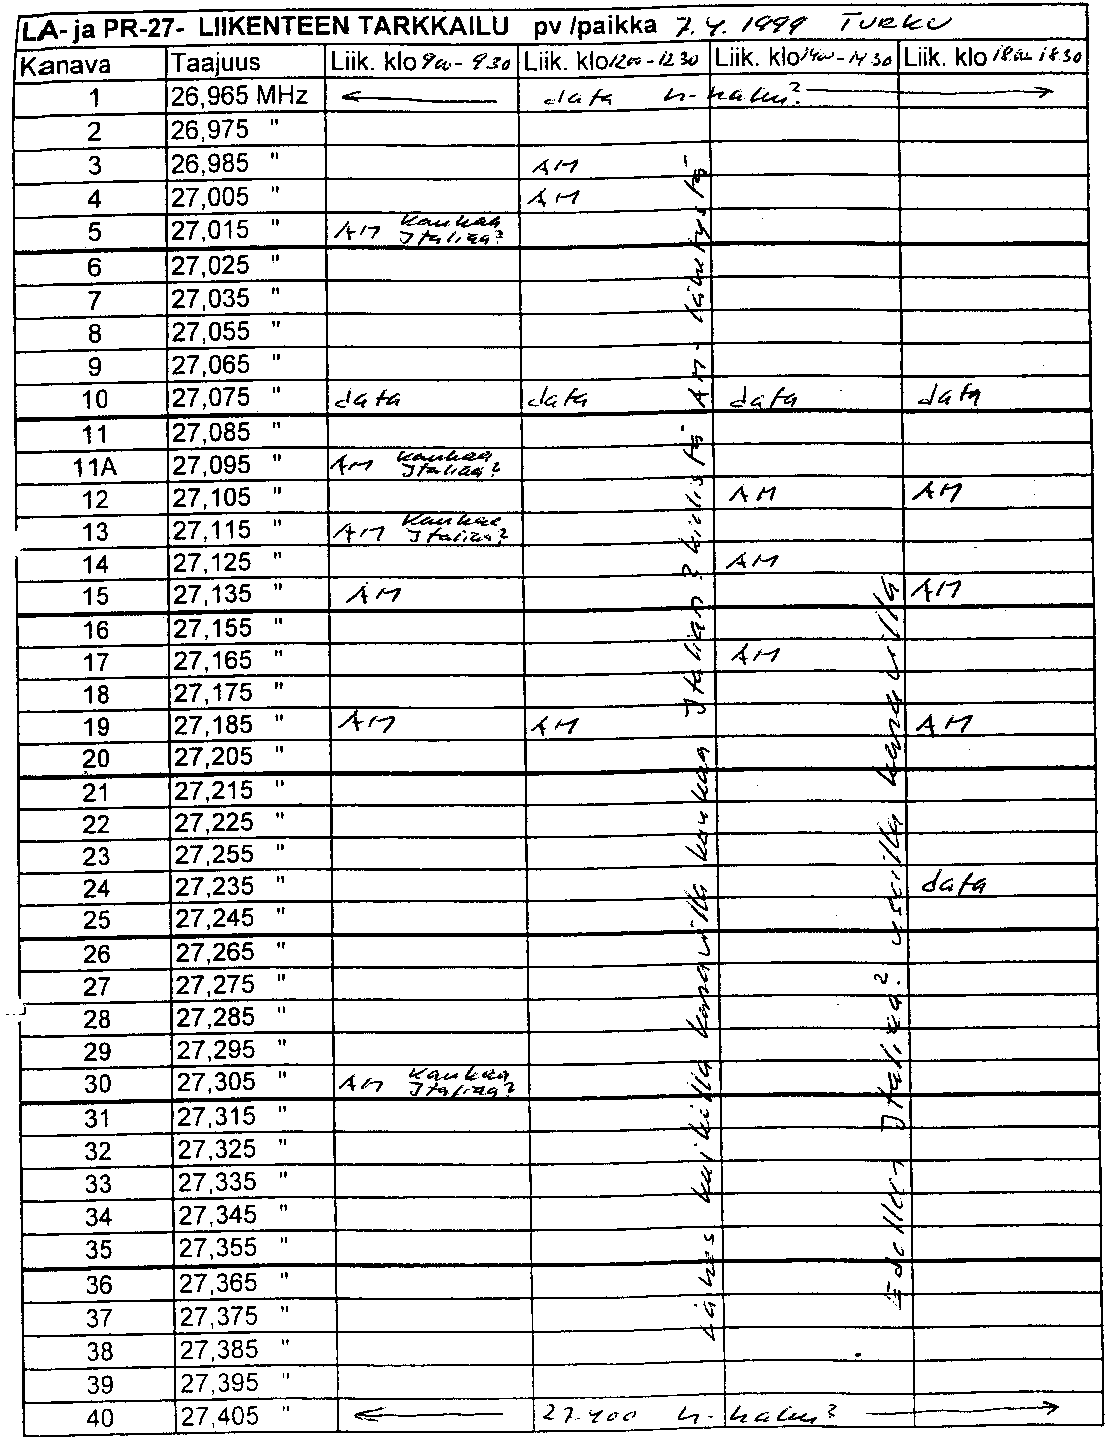 LA- ja PR-27- LIIKENTEEN TARKKAILU pv /paikka 7.4.1999 TURKU
Kanava Taajuus Liik. klo 9oo - 930 Liik. klo 12oo - 1230 Liik. klo 14oo - 1430 Liik. klo 18oo 1830
1 26,965 MHz ← data h-haku? →
2 26,975 "
3 26,985 " AM
4 27,005 " AM
5 27,015 " AM Kaukaa Italiaa?
6 27,025 "
7 27,035 "
8 27,055 "
9 27,065 "
10 27,075 " data data data data
11 27,085 "
11A 27,095 " AM Kaukaa Italiaa?
12 27,105 " AM AM
13 27,115 " AM Kaukaa Italiaa?
14 27,125 " AM
15 27,135 " AM AM
16 27,155 "
17 27,165 " AM
18 27,175 "
19 27,185 " AM AM AM
20 27,205 "
21 27,215 "
22 27,225 "
23 27,255 "
24 27,235 " data
25 27,245 "
26 27,265 "
27 27,275 "
28 27,285 "
29 27,295 "
30 27,305 " AM Kaukaa Italiaa?
31 27,315 "
32 27,325 "
33 27,335 "
34 27,345 "
35 27,355 "
36 27,365 "
37 27,375 "
38 27,385 "
39 27,395 "
40 27,405 " ← 27.400 h-haku? →
Lähes kaikilla kanavilla kaukaa Italian? kielistä AM- läketystä
Edelleen Italiaa? useilla kanavilla